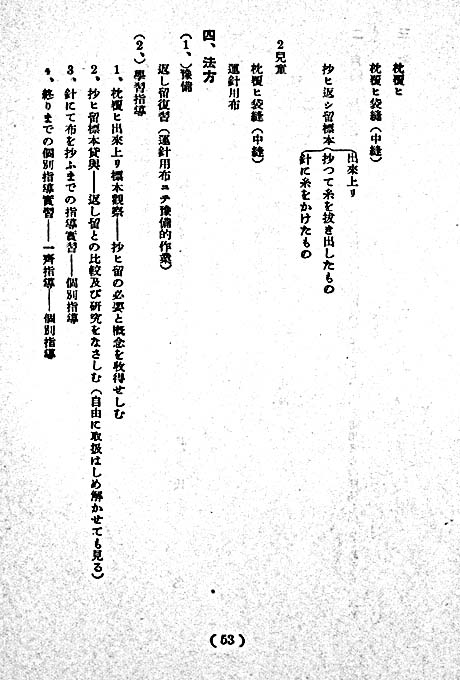 枕覆ヒ
枕覆ヒ袋縫(中縫)
抄ヒ返シ留標本
出來上リ
抄つて糸を拔き出したもの
針に糸をかけたもの
2兒童
枕覆ヒ袋縫(中縫)
運針用布
四、法方
(1、)豫備
返し留復習(運針用布ニテ豫備的作業)
(2、)學習指導
1、枕覆ヒ出來上リ標本觀察——抄ヒ留の必要と槪念を收得せしむ
2、抄ヒ留標本貸與——返し留との比較及び硏究をなさしむ(自由に取扱はしめ解かせても見る)
3、針にて布を抄ふまでの指導實習——個別指導
4、終りまでの個別指導實習——一齊指導——個別指導
(53)